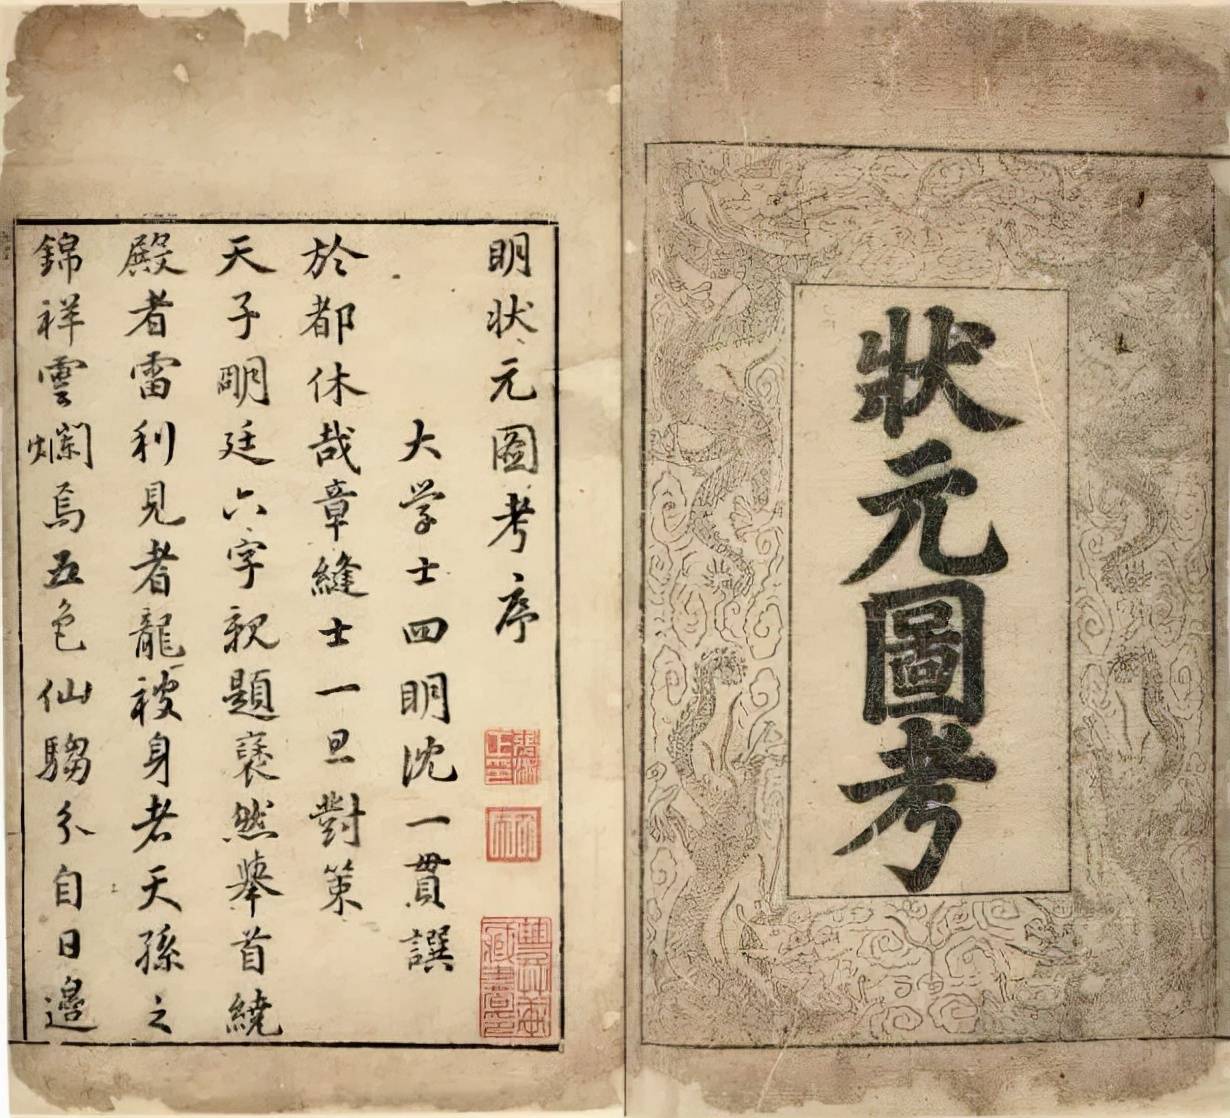 狀元圖考
明状元圖考序
大学士四明沈一貫譔
於都休哉章縫士一旦對策
天子明廷六字親題褎然舉首繞
殿者雷利見者龍被身者天孫之
錦祥雲爛焉五色仙騶爪自日邊